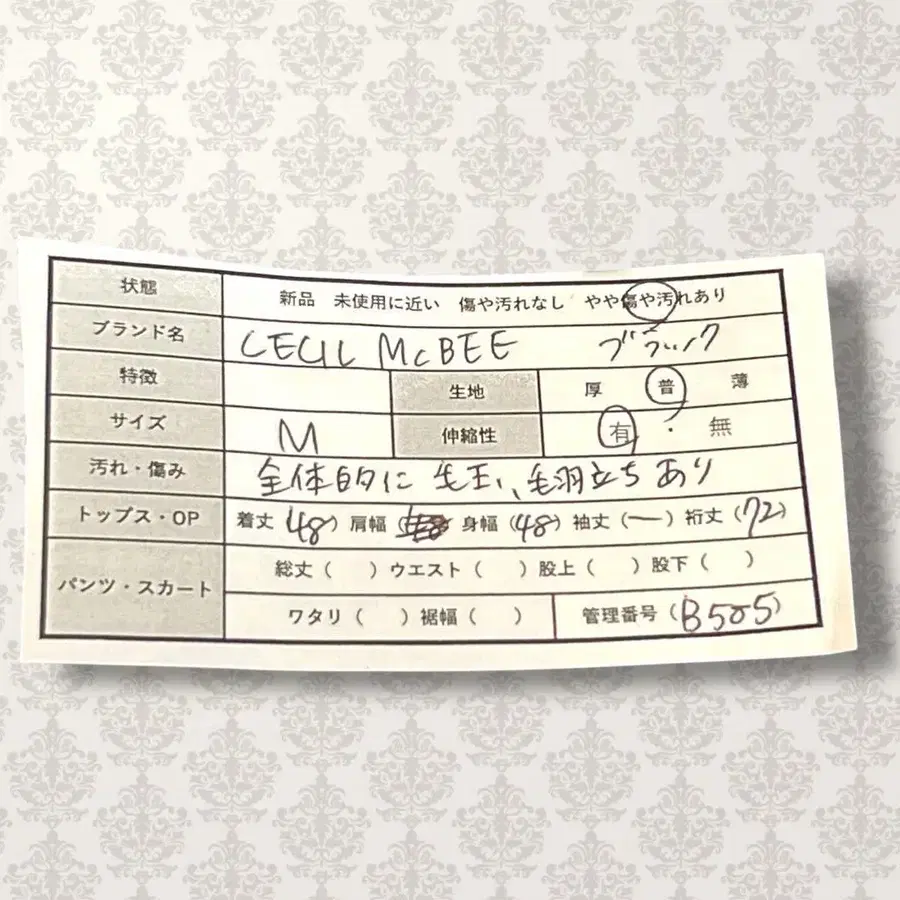 状態 新品 未使用に近い 傷や汚れなし やや傷や汚れあり
ブランド名 CECIL McBEE ブラック
特徴 生地 厚 普 薄
サイズ M 伸縮性 有 ・ 無
汚れ・傷み 全体的に毛玉、毛羽立ちあり
トップス・OP 着丈(48) 肩幅( 身幅(48) 袖丈(ー) 裄丈(72)
パンツ・スカート 総丈( )ウエスト( )股上( )股下( )
ワタリ( )裾幅( ) 管理番号(B505)